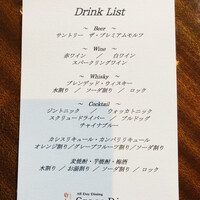 Drink List
～ Beer ～
サントリー ザ・プレミアムモルツ
～ Wine ～
赤ワイン ／ 白ワイン
スパークリングワイン
～ Whisky ～
ブレンデッド・ウィスキー
水割り ／ ソーダ割り ／ ロック
～ Cocktail ～
ジントニック ／ ウォッカトニック
スクリュードライバー ／ ブルドッグ
チャイナブルー
カシスリキュール・カンパリリキュール
オレンジ割り／グレープフルーツ割り／ソーダ割り
麦焼酎・芋焼酎・梅酒
水割り ／ お湯割り ／ ソーダ割り ／ ロック
All Day Dining